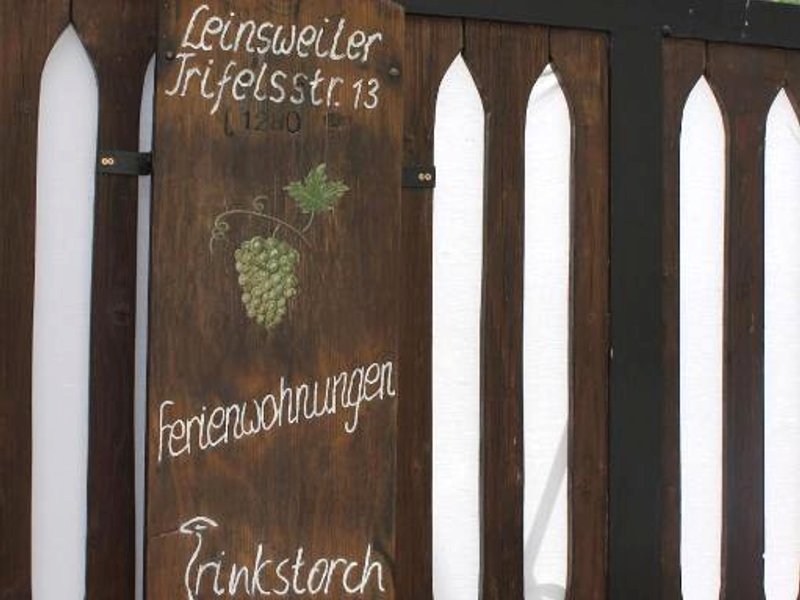 Leinsweiler
Trifelsstr. 13
Ferienwohnungen
Trinkstorch